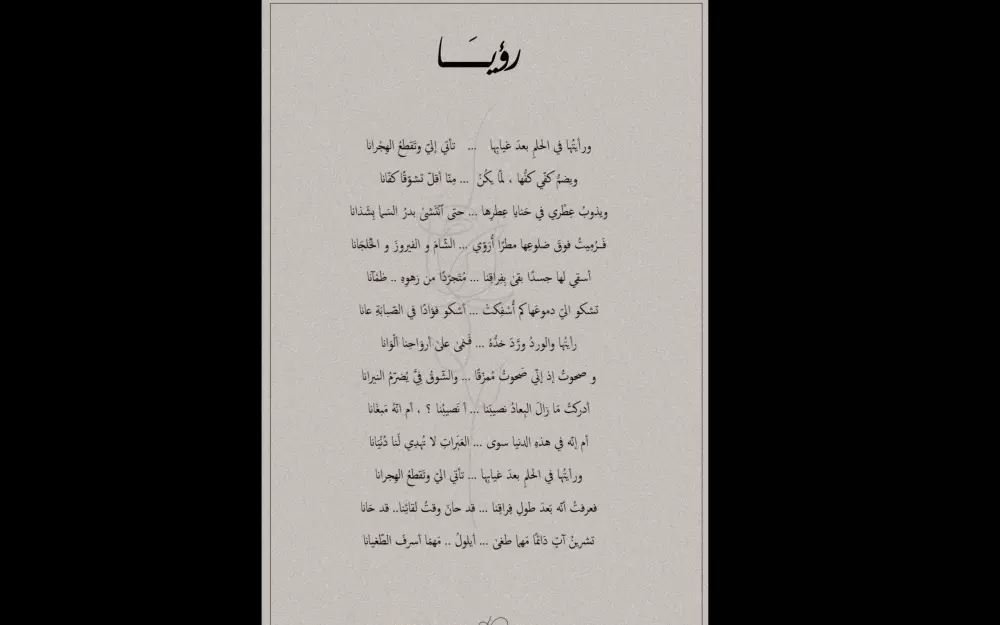 رؤيَـــا
ورأيتُها في الحلمِ بعدَ غيابِها ... تأتي إليّ وتَقطعُ الهِجْرانا
ويضمُّ كفّي كفُّها ، لمّا يكُنْ ... مِنّا أقلّ تشوّقًا كفّانا
ويذوبُ عِطْري في حَنايا عِطرِها ... حتى اَنتَشىٰ بدرُ السَما بِشَذانا
فَـرُمِيتُ فوقَ ضلوعِها مطرًا أُرَوّي ... الشّامَ و الفيروزَ و الخُلجَانا
أسقي لها جسدًا بقىٰ بِفِراقِنا ... مُتَجرّدًا من زهوِهِ .. ظمْآنا
تشكو اليّ دموعَها كم أُسْفِكتْ ... أشكو فؤادًا في الصّبابَةِ عانا
رأيتُها والوردُ ورَّدَ خدَّهُ ... فَنمىٰ علىٰ أرواحِنا ألْوَانا
و صحوتُ إذ إنّي صَحوتُ مُمزّقًا ... والشّوقُ فِيَّ يُضرّمُ النيرانا
أدركتُ مَا زالَ البِعادُ نصيبَنا ... أ نَصيبُنا ؟ ، أم انّهُ مَبغَانا
أم إنّه في هذهِ الدنيا سوى ... العَبَراتِ لا تُهدِي لَنا دُنْيَانا
ورأيتُها في الحلمِ بعدَ غيابِها ... تأتي اليّ وتَقطعُ الهجرانا
فعرفتُ أنّه بَعدَ طولِ فِراقِنا ... قد حانَ وقتُ لقائِنا.. قد حَانا
تشرينُ آتٍ دَائمًا مَهما طغىٰ ... أيلولُ .. مَهمَا أسرفَ الطّغيانا